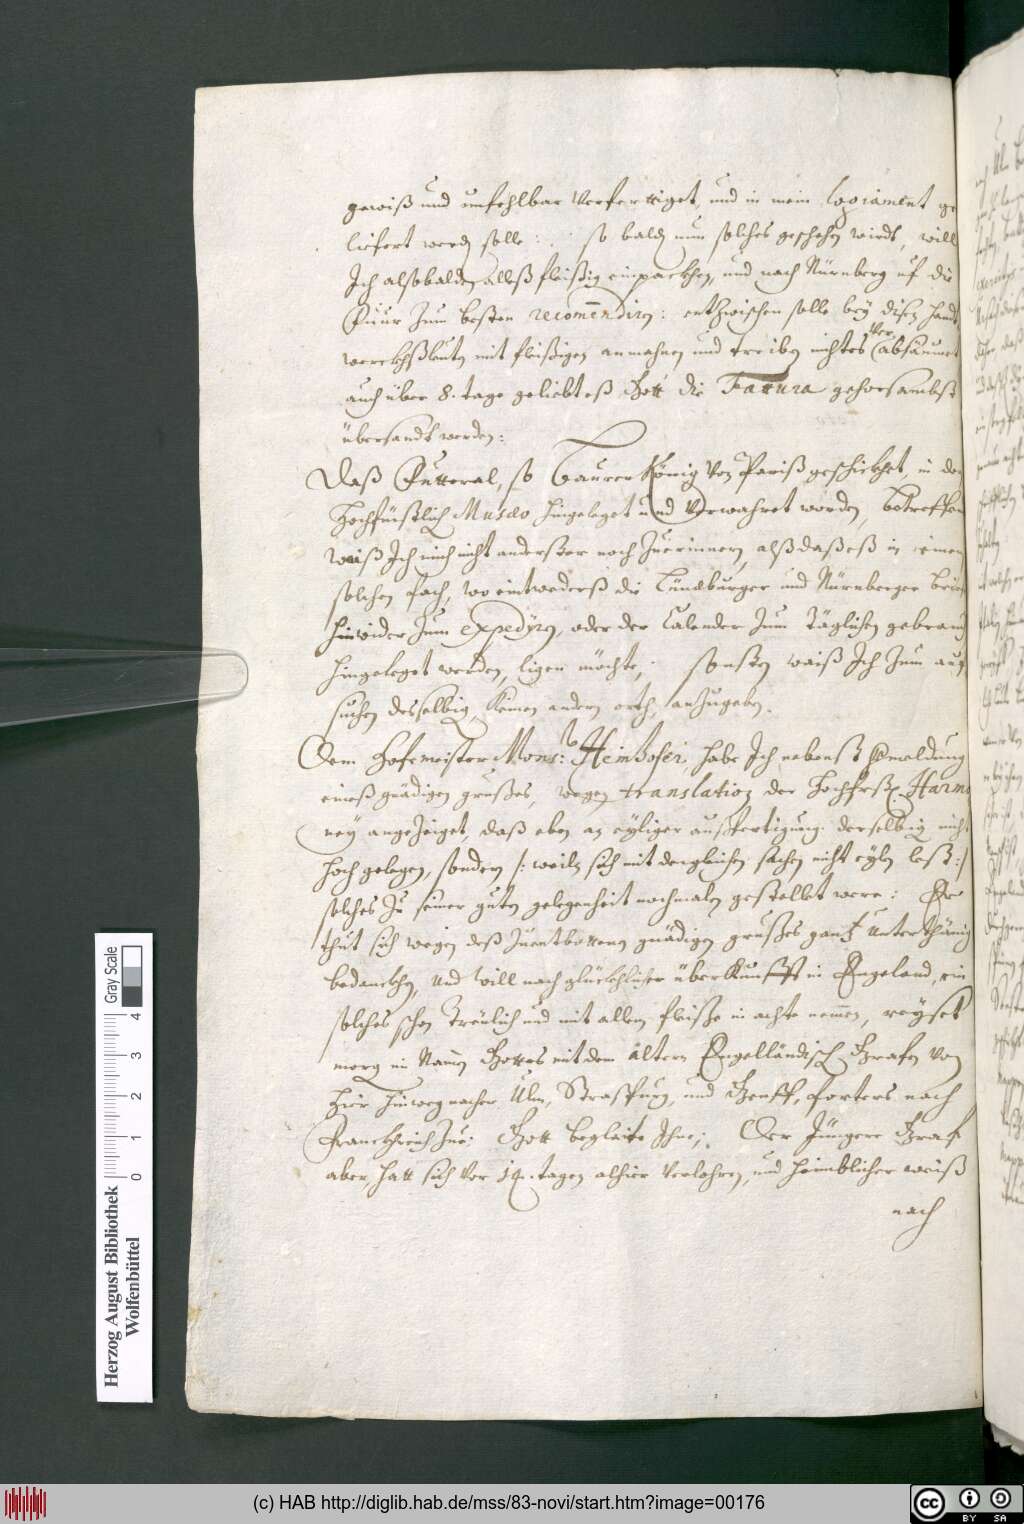 gewiß und unfehlbar verfertiget, und in mein Logiament ge
liefert werden solle: so bald nun solches geschehen wirdt, will
Ich alsobalden alleß fleißig einpackhen, und nach Nürnberg uf die
Fuur zum besten recommendiren: entzwischen solle bey disen handt
werckhßleüten mit fleißigen anmahnen und treiben nichtes verabsäumet
auch über 8. tage geliebts Gott die Fattura gehorsambst
übersandt werden:
Daß Futteral, so Bauren König von Pariß geschickhet, in der
Hochfürstlich Musaeo hingeleget und verwahret worden, betreffen
waiß Ich mich nicht anderster noch zuerinnern, alß daß eß in einem
solchen fach, wo eintwederß die Lündburger und Nürnberger brief
hinwider zum expedyren, oder der Calender zum täglichen gebrauch
hingeleget werden, ligen möchte; sonsten waiß Ich zum auf
suchen desselbigen keinen andern orth anzugeben.
Dem Hofemeister Mons: Heinhofer, habe Ich nebenst vermeldung
eineß gnädigen grußes, wegen translation der Hochfürstl. Harmo
ney angezeiget, daß eben an eyliger außfertigung derselbigen nicht
hoch gelegen, sondern /: weiln sich mit dergleichen sachen nicht eyln leßt :/
solches zu seiner guten gelegenheit nochmalen gestellet were: Er
thut sich wegen deß zuentbottenen gnädigen grußes gantz unterthänig
bedanckhen, und will nach glücklicher überkunfft in Engeland, ein
solches schon treülich und mit allem fleiße in achte nemen, reyset
morgen in Namen Gottes mit dem ältern Engelländischen Grafen von
hier hinweg nacher Ulm, Straspurg, und Genff, forters nach
Franckhreich zue: Gott beglaite Ihne; Der Jüngere Graf
aber, hatt sich vor 14. tagen alhier verlohren, und heimblicher weiß
nach
Herzog August Bibliothek
Wolfenbüttel
0 1 2 3 4
Gray Scale
(c) HAB http://diglib.hab.de/mss/83-novi/start.htm?image=00176
cc BY SA